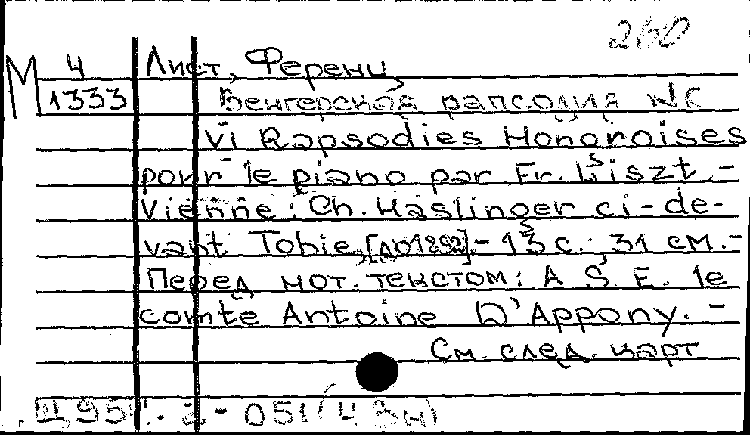 260
М 4 Лист, Ференц
1333 Венгерская рапсодия №6
VI Rapsodies Hongroises
pour le piano par Fr. Liszt. –
Vienne: Ch. Haslinger ci-de-
vant Tobie, [до 1892] – 13 с.; 31 см. –
Перед нот. текстом: A S. E. le
comte Antoine D'Appony. –
См. след. карт
Щ 954.